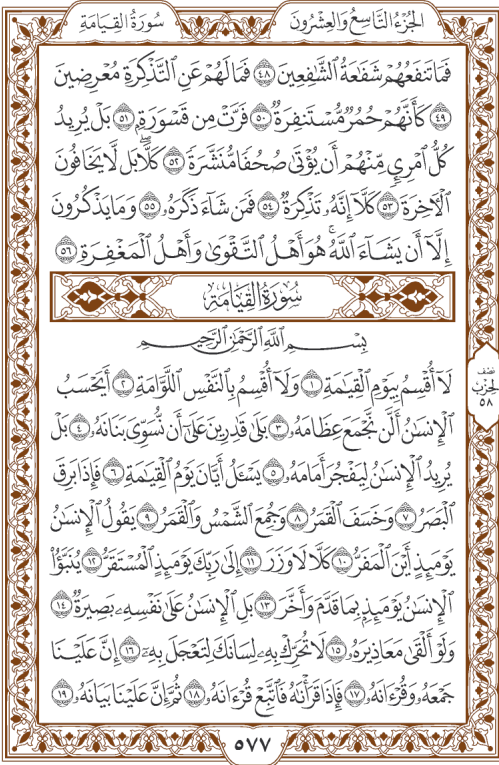 سُورَةُ القِيَامَةِ
الجُزْءُ التَّاسِعُ وَالعِشْرُونَ
فَمَا تَنفَعُهُمْ شَفَٰعَةُ ٱلشَّٰفِعِينَ ٤٨ فَمَا لَهُمْ عَنِ ٱلتَّذْكِرَةِ مُعْرِضِينَ
٤٩ كَأَنَّهُمْ حُمُرٌ مُّسْتَنفِرَةٌ ٥٠ فَرَّتْ مِن قَسْوَرَةٍۭ ٥١ بَلْ يُرِيدُ
كُلُّ ٱمْرِئٍ مِّنْهُمْ أَن يُؤْتَىٰ صُحُفًا مُّنَشَّرَةً ٥٢ كَلَّاۖ بَل لَّا يَخَافُونَ
ٱلْءَاخِرَةَ ٥٣ كَلَّآ إِنَّهُۥ تَذْكِرَةٌ ٥٤ فَمَن شَآءَ ذَكَرَهُۥ ٥٥ وَمَا يَذْكُرُونَ
إِلَّآ أَن يَشَآءَ ٱللَّهُۚ هُوَ أَهْلُ ٱلتَّقْوَىٰ وَأَهْلُ ٱلْمَغْفِرَةِ ٥٦
سُورَةُ القِيَامَةِ
بِسْمِ ٱللَّهِ ٱلرَّحْمَٰنِ ٱلرَّحِيمِ
لَآ أُقْسِمُ بِيَوْمِ ٱلْقِيَٰمَةِ ١ وَلَآ أُقْسِمُ بِٱلنَّفْسِ ٱللَّوَّامَةِ ٢ أَيَحْسَبُ
ٱلْإِنسَٰنُ أَلَّن نَّجْمَعَ عِظَامَهُۥ ٣ بَلَىٰ قَٰدِرِينَ عَلَىٰٓ أَن نُّسَوِّىَ بَنَانَهُۥ ٤ بَلْ
يُرِيدُ ٱلْإِنسَٰنُ لِيَفْجُرَ أَمَامَهُۥ ٥ يَسْـَٔلُ أَيَّانَ يَوْمُ ٱلْقِيَٰمَةِ ٦ فَإِذَا بَرِقَ
ٱلْبَصَرُ ٧ وَخَسَفَ ٱلْقَمَرُ ٨ وَجُمِعَ ٱلشَّمْسُ وَٱلْقَمَرُ ٩ يَقُولُ ٱلْإِنسَٰنُ
يَوْمَئِذٍ أَيْنَ ٱلْمَفَرُّ ١٠ كَلَّا لَا وَزَرَ ١١ إِلَىٰ رَبِّكَ يَوْمَئِذٍ ٱلْمُسْتَقَرُّ ١٢ يُنَبَّؤُا۟
ٱلْإِنسَٰنُ يَوْمَئِذٍۭ بِمَا قَدَّمَ وَأَخَّرَ ١٣ بَلِ ٱلْإِنسَٰنُ عَلَىٰ نَفْسِهِۦ بَصِيرَةٌ ١٤
وَلَوْ أَلْقَىٰ مَعَاذِيرَهُۥ ١٥ لَا تُحَرِّكْ بِهِۦ لِسَانَكَ لِتَعْجَلَ بِهِۦٓ ١٦ إِنَّ عَلَيْنَا
جَمْعَهُۥ وَقُرْءَانَهُۥ ١٧ فَإِذَا قَرَأْنَٰهُ فَٱتَّبِعْ قُرْءَانَهُۥ ١٨ ثُمَّ إِنَّ عَلَيْنَا بَيَانَهُۥ ١٩
نصف
الحزب
٥٨
٥٧٧